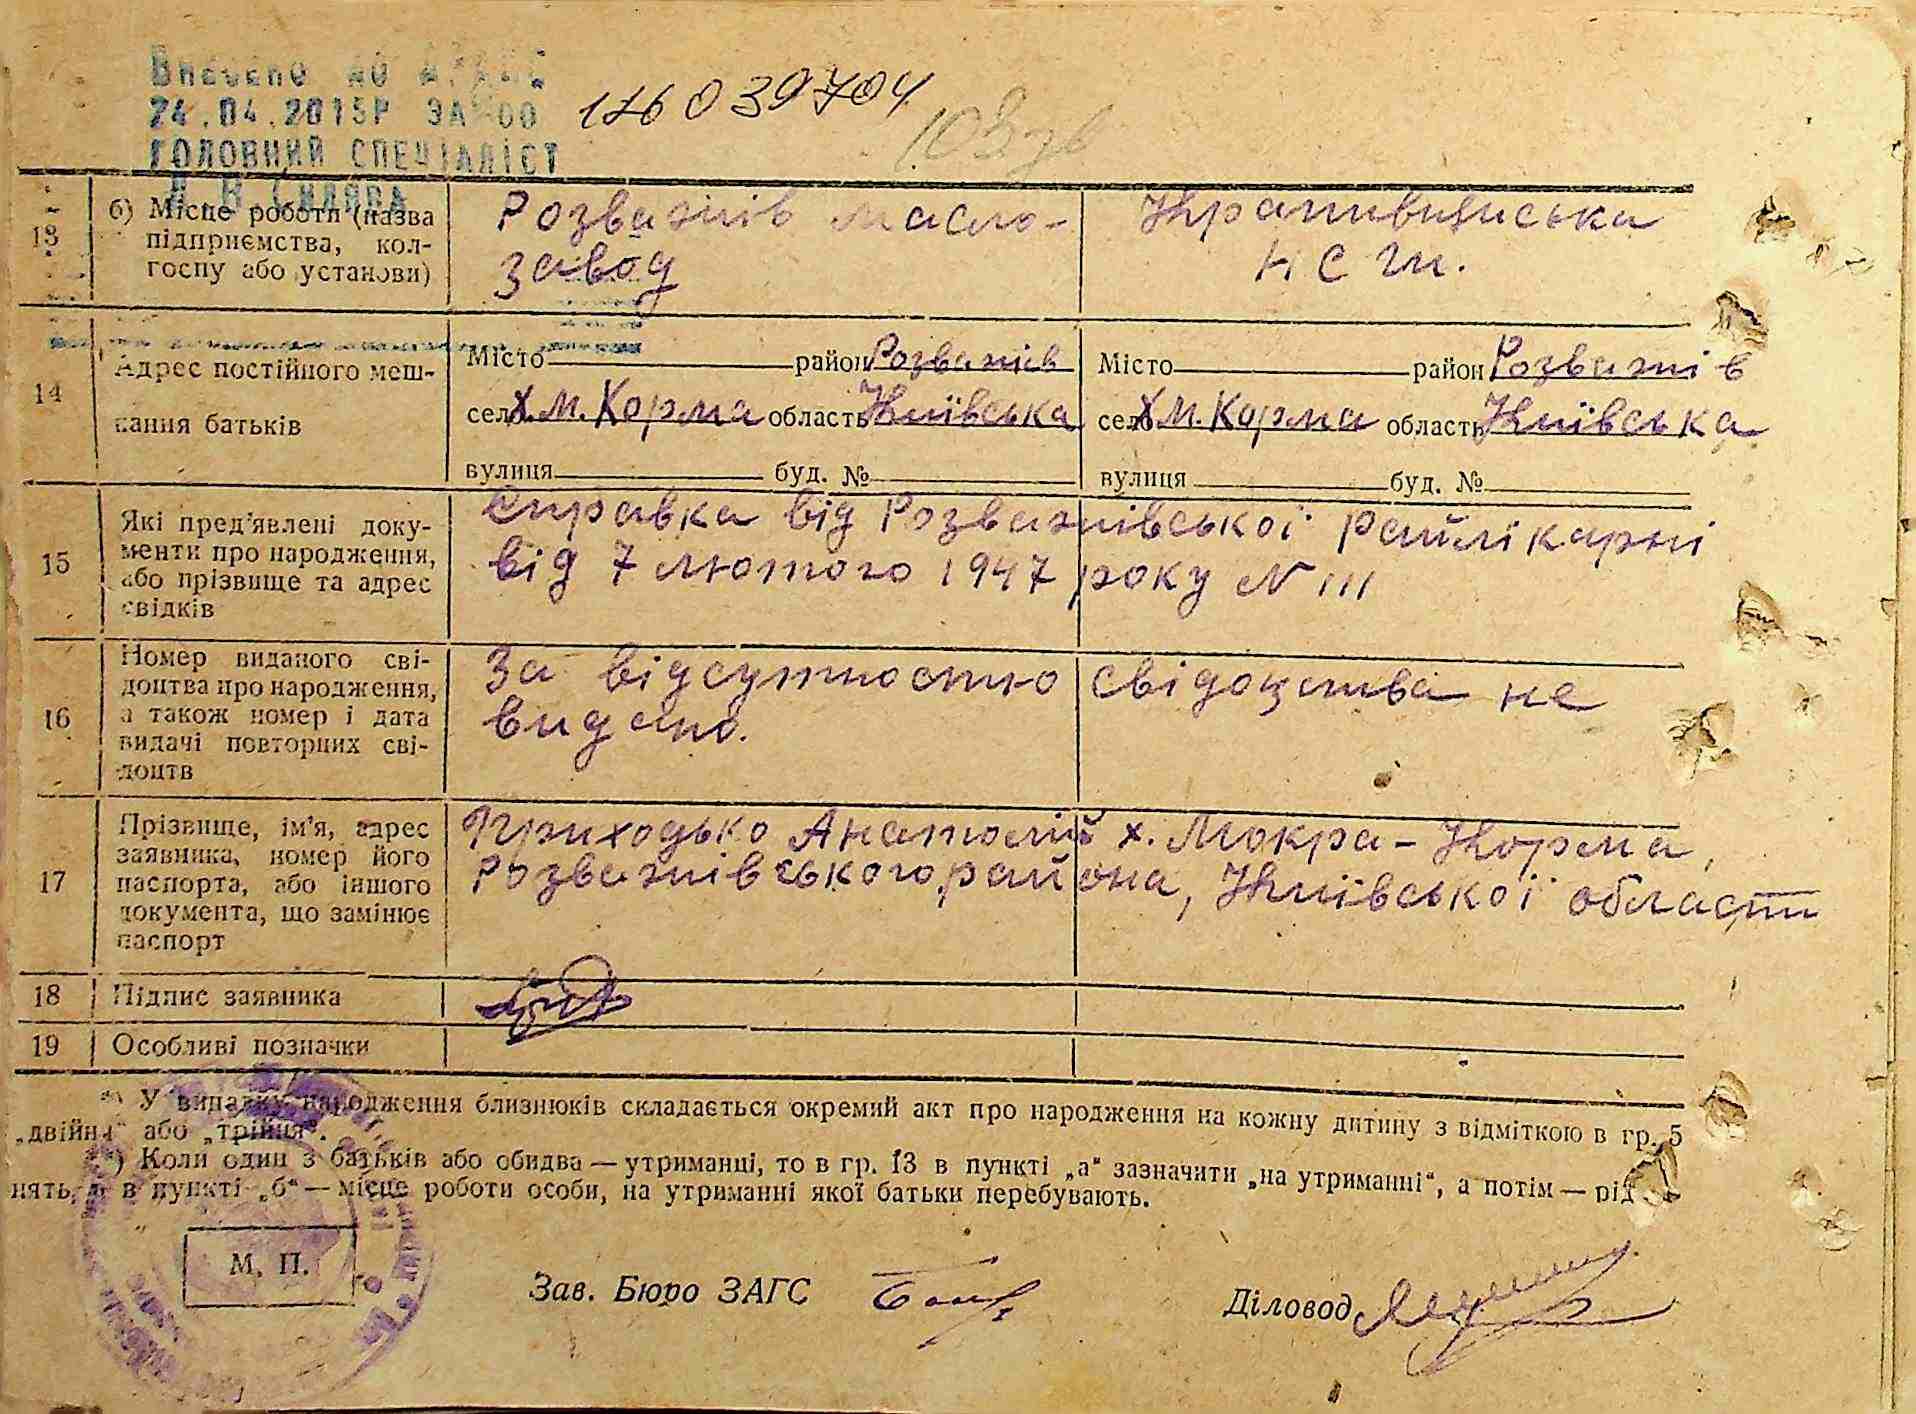 Внесено до
24.04.2015Р ЗА 00
ГОЛОВНИЙ СПЕЦІАЛІСТ
176 039704
13
б) Місце роботи (назва підприємства, колгоспу або установи)
Розважів масло-
завод
Крапивнянська
НСШ.
14
Адрес постійного меш-
кання батьків
Місто район Розважів
село х.М.Корма область Київська
вулиця буд. №
Місто район Розважів
село х.М.Корма область Київська
вулиця буд. №
15
Які пред'явлені доку-
менти про народження,
або прізвище та адрес
свідків
Справка від Розважівської райлікарні
від 7 лютого 1947 року № 111
16
Номер виданого сві-
доцтва про народження,
а також номер і дата
видачі повторних сві-
доцтв
За відсутностю свідоцтва не
видано.
17
Прізвище, ім'я, адрес
заявника, номер його
паспорта, або іншого
документа, що замінює
паспорт
Приходько Анатолій х. Мокра-Корма,
Розважівського района, Київської області
18
Підпис заявника
19
Особливі позначки
*) У випадку народження близнюків складається окремий акт про народження на кожну дитину з відміткою в гр. 5
„двійня" або „трійня".
*) Коли один з батьків або обидва — утриманці, то в гр. 13 в пункті „а" зазначити „на утриманні", а потім — рід
нять, а в пункті „б" — місце роботи особи, на утриманні якої батьки перебувають.
М. П.
Зав. Бюро ЗАГС
Діловод